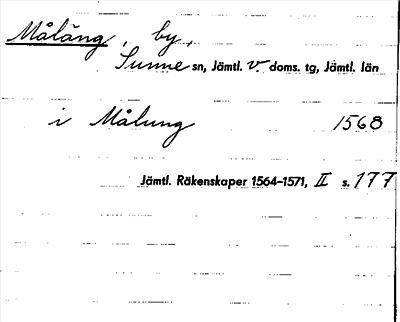 Målång, by,
Sunne sn, Jämtl. v. doms. tg, Jämtl. län
i Målung 1568
Jämtl. Räkenskaper 1564–1571, II s. 177